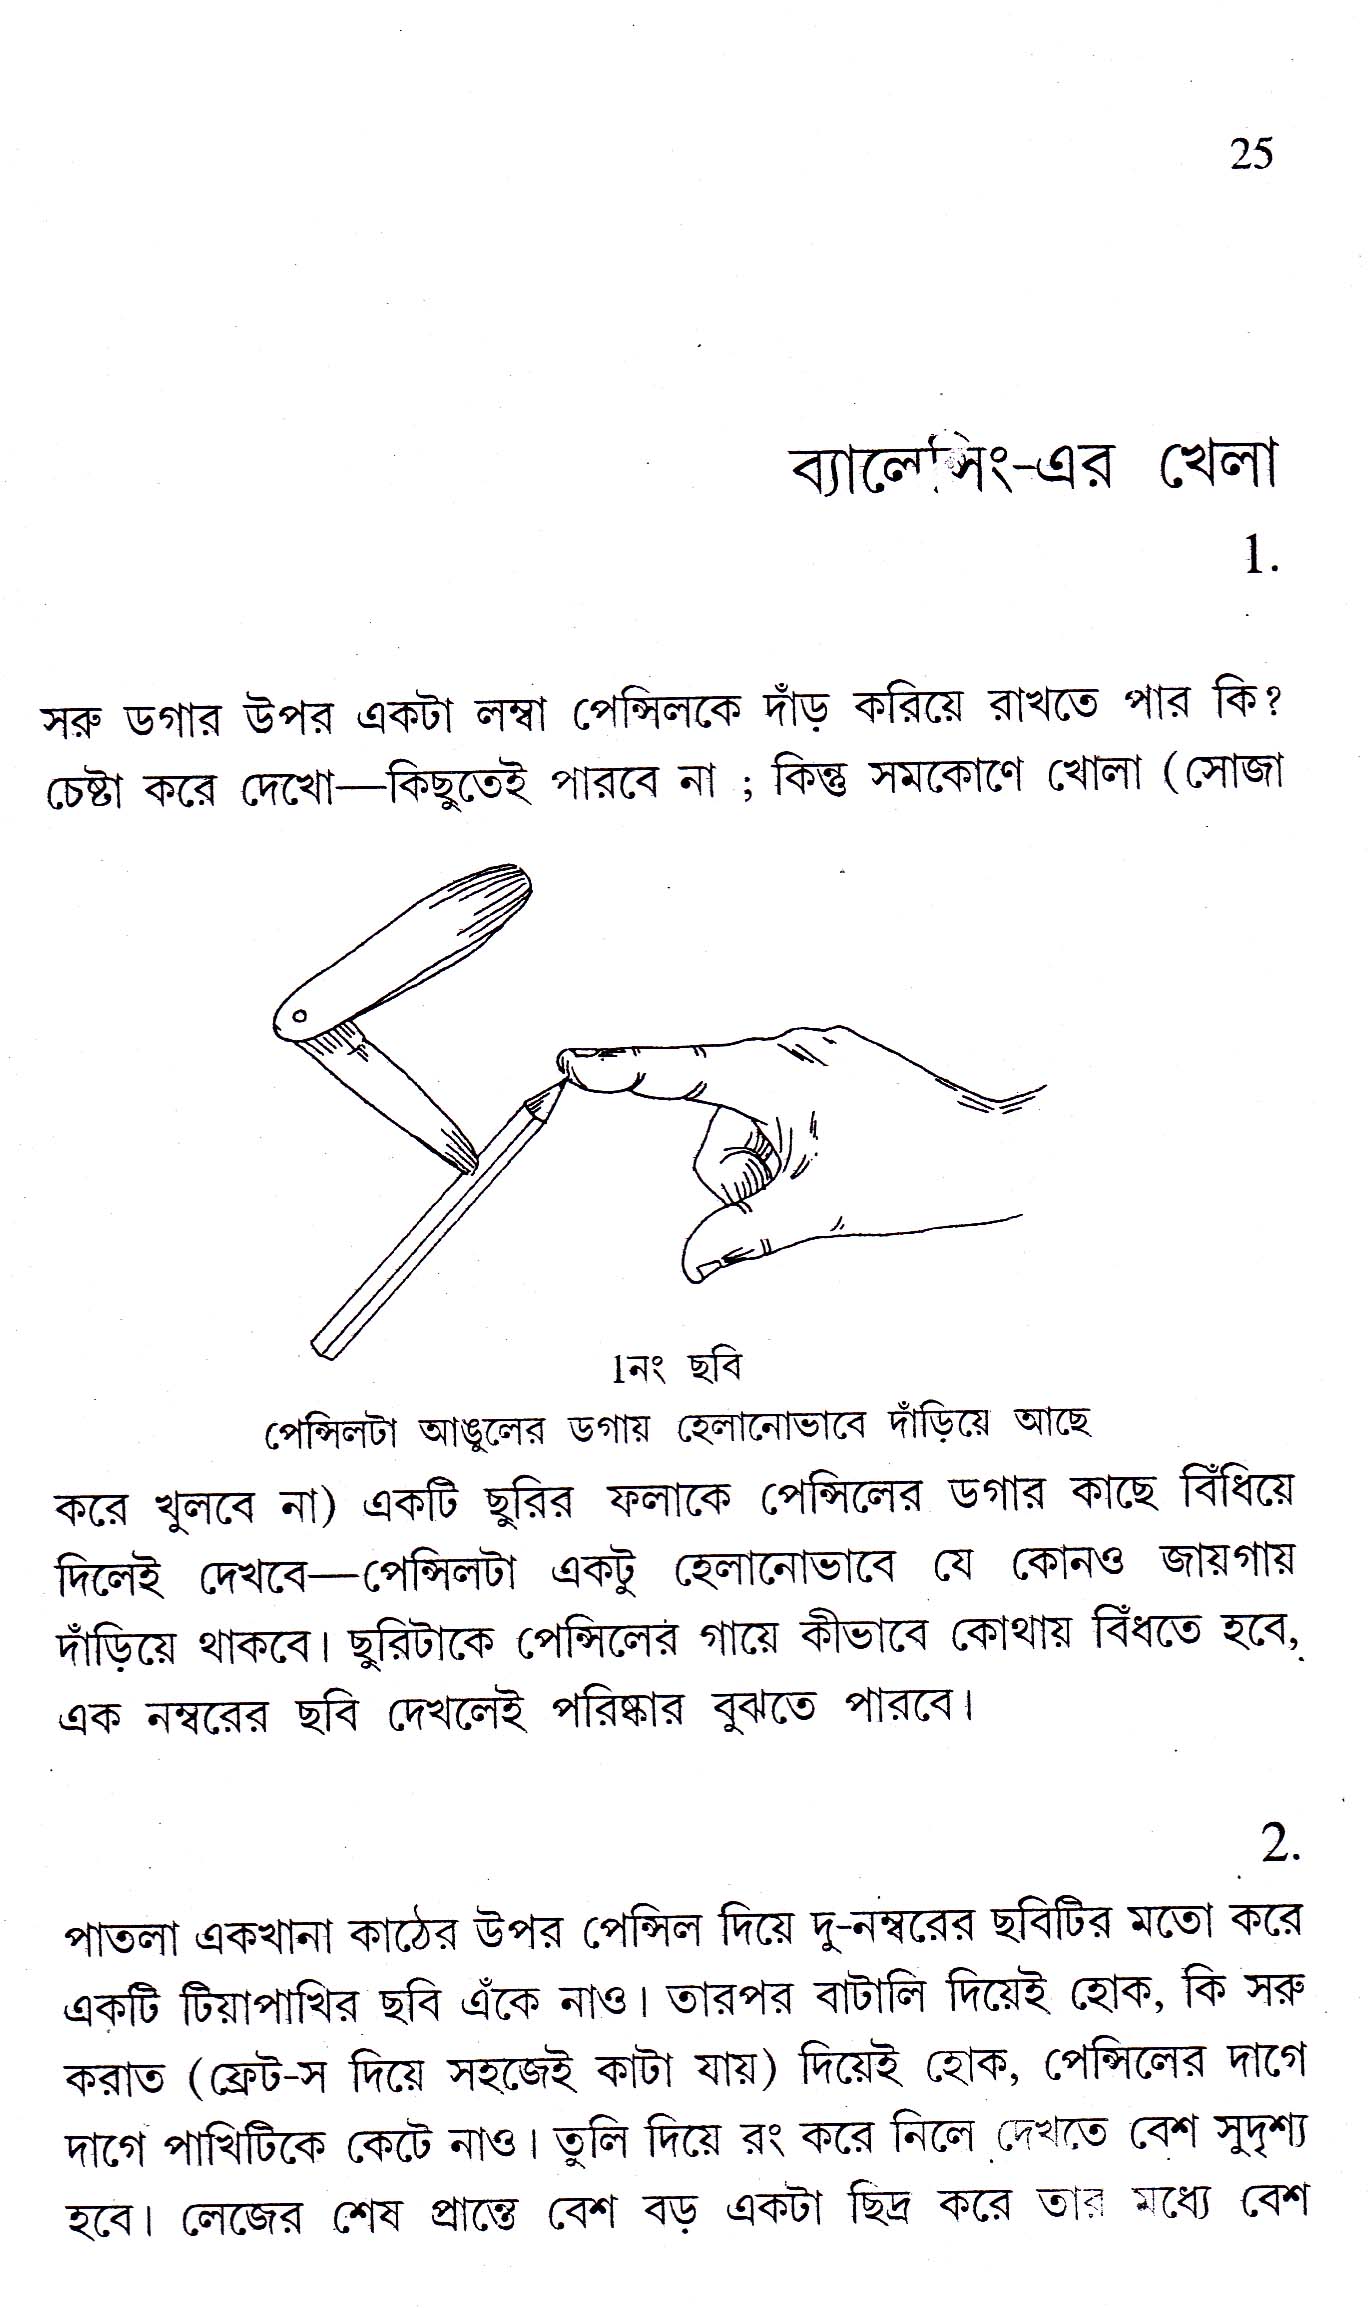 25
ব্যালেন্সিং-এর খেলা
1.
সরু ডগার উপর একটা লম্বা পেন্সিলকে দাঁড় করিয়ে রাখতে পার কি?
চেষ্টা করে দেখো—কিছুতেই পারবে না ; কিন্তু সমকোণে খোলা (সোজা
1নং ছবি
পেন্সিলটা আঙুলের ডগায় হেলানোভাবে দাঁড়িয়ে আছে
করে খুলবে না) একটি ছুরির ফলাকে পেন্সিলের ডগার কাছে বিঁধিয়ে
দিলেই দেখবে—পেন্সিলটা একটু হেলানোভাবে যে কোনও জায়গায়
দাঁড়িয়ে থাকবে। ছুরিটাকে পেন্সিলের গায়ে কীভাবে কোথায় বিঁধতে হবে,
এক নম্বরের ছবি দেখলেই পরিষ্কার বুঝতে পারবে।
2.
পাতলা একখানা কাঠের উপর পেন্সিল দিয়ে দু-নম্বরের ছবিটির মতো করে
একটি টিয়াপাখির ছবি এঁকে নাও। তারপর বাটালি দিয়েই হোক, কি সরু
করাত (ফ্রেট-স দিয়ে সহজেই কাটা যায়) দিয়েই হোক, পেন্সিলের দাগে
দাগে পাখিটিকে কেটে নাও। তুলি দিয়ে রং করে নিলে দেখতে বেশ সুদৃশ্য
হবে। লেজের শেষ প্রান্তে বেশ বড় একটা ছিদ্র করে তার মধ্যে বেশ